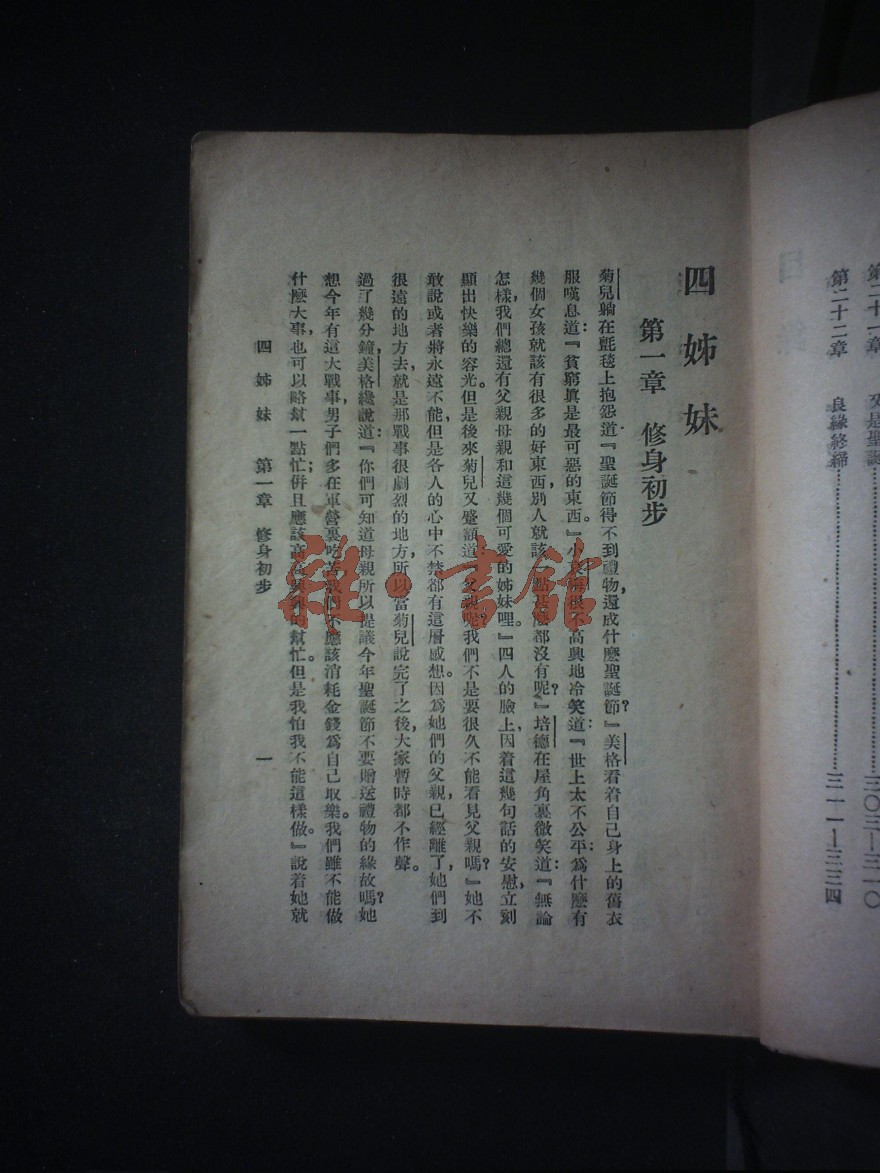 第二十一章 又是聖誕……三〇三—三一〇
第二十二章 良緣終締……三一一—三三四
四姊妹
第一章 修身初步
菊兒躺在氈毯上抱怨道:『聖誕節得不到禮物,還成什麽聖誕節?』美格看着自己身上的舊衣
服嘆息道:『貧窮眞是最可惡的東西。』小很不高興地冷笑道:『世上太不公平:爲什麽有
幾個女孩就該有很多的好東西,別人就該一點甚麽都沒有呢?』培德在屋角裏微笑道:『無論
怎樣,我們總還有父親母親和這幾個可愛的姊妹哩。』四人的臉上,因着這幾句話的安慰,立刻
顯出快樂的容光。但是後來菊兒又蹙額道:『父親呢?我們不是要很久不能看見父親嗎?』她不
敢說或者將永遠不能,但是各人的心中不禁都有這層感想。因爲她們的父親,已經離了她們,到
很遠的地方去,就是那戰事很劇烈的地方,所以當菊兒說完了之後,大家暫時都不作聲。
過了幾分鐘,美格纔說道:『你們可知道母親所以提議今年聖誕節不要贈送禮物的緣故嗎?她
想今年有這大戰事,男子們多在軍營裏吃苦,我們不應該消耗金錢爲自己取樂。我們雖不能做
什麽大事,也可以略幫一點忙;併且應該高高興興的幫忙。但是我怕我不能這樣做。』說着她就
四姊妹 第一章 修身初步 一
雜·書館